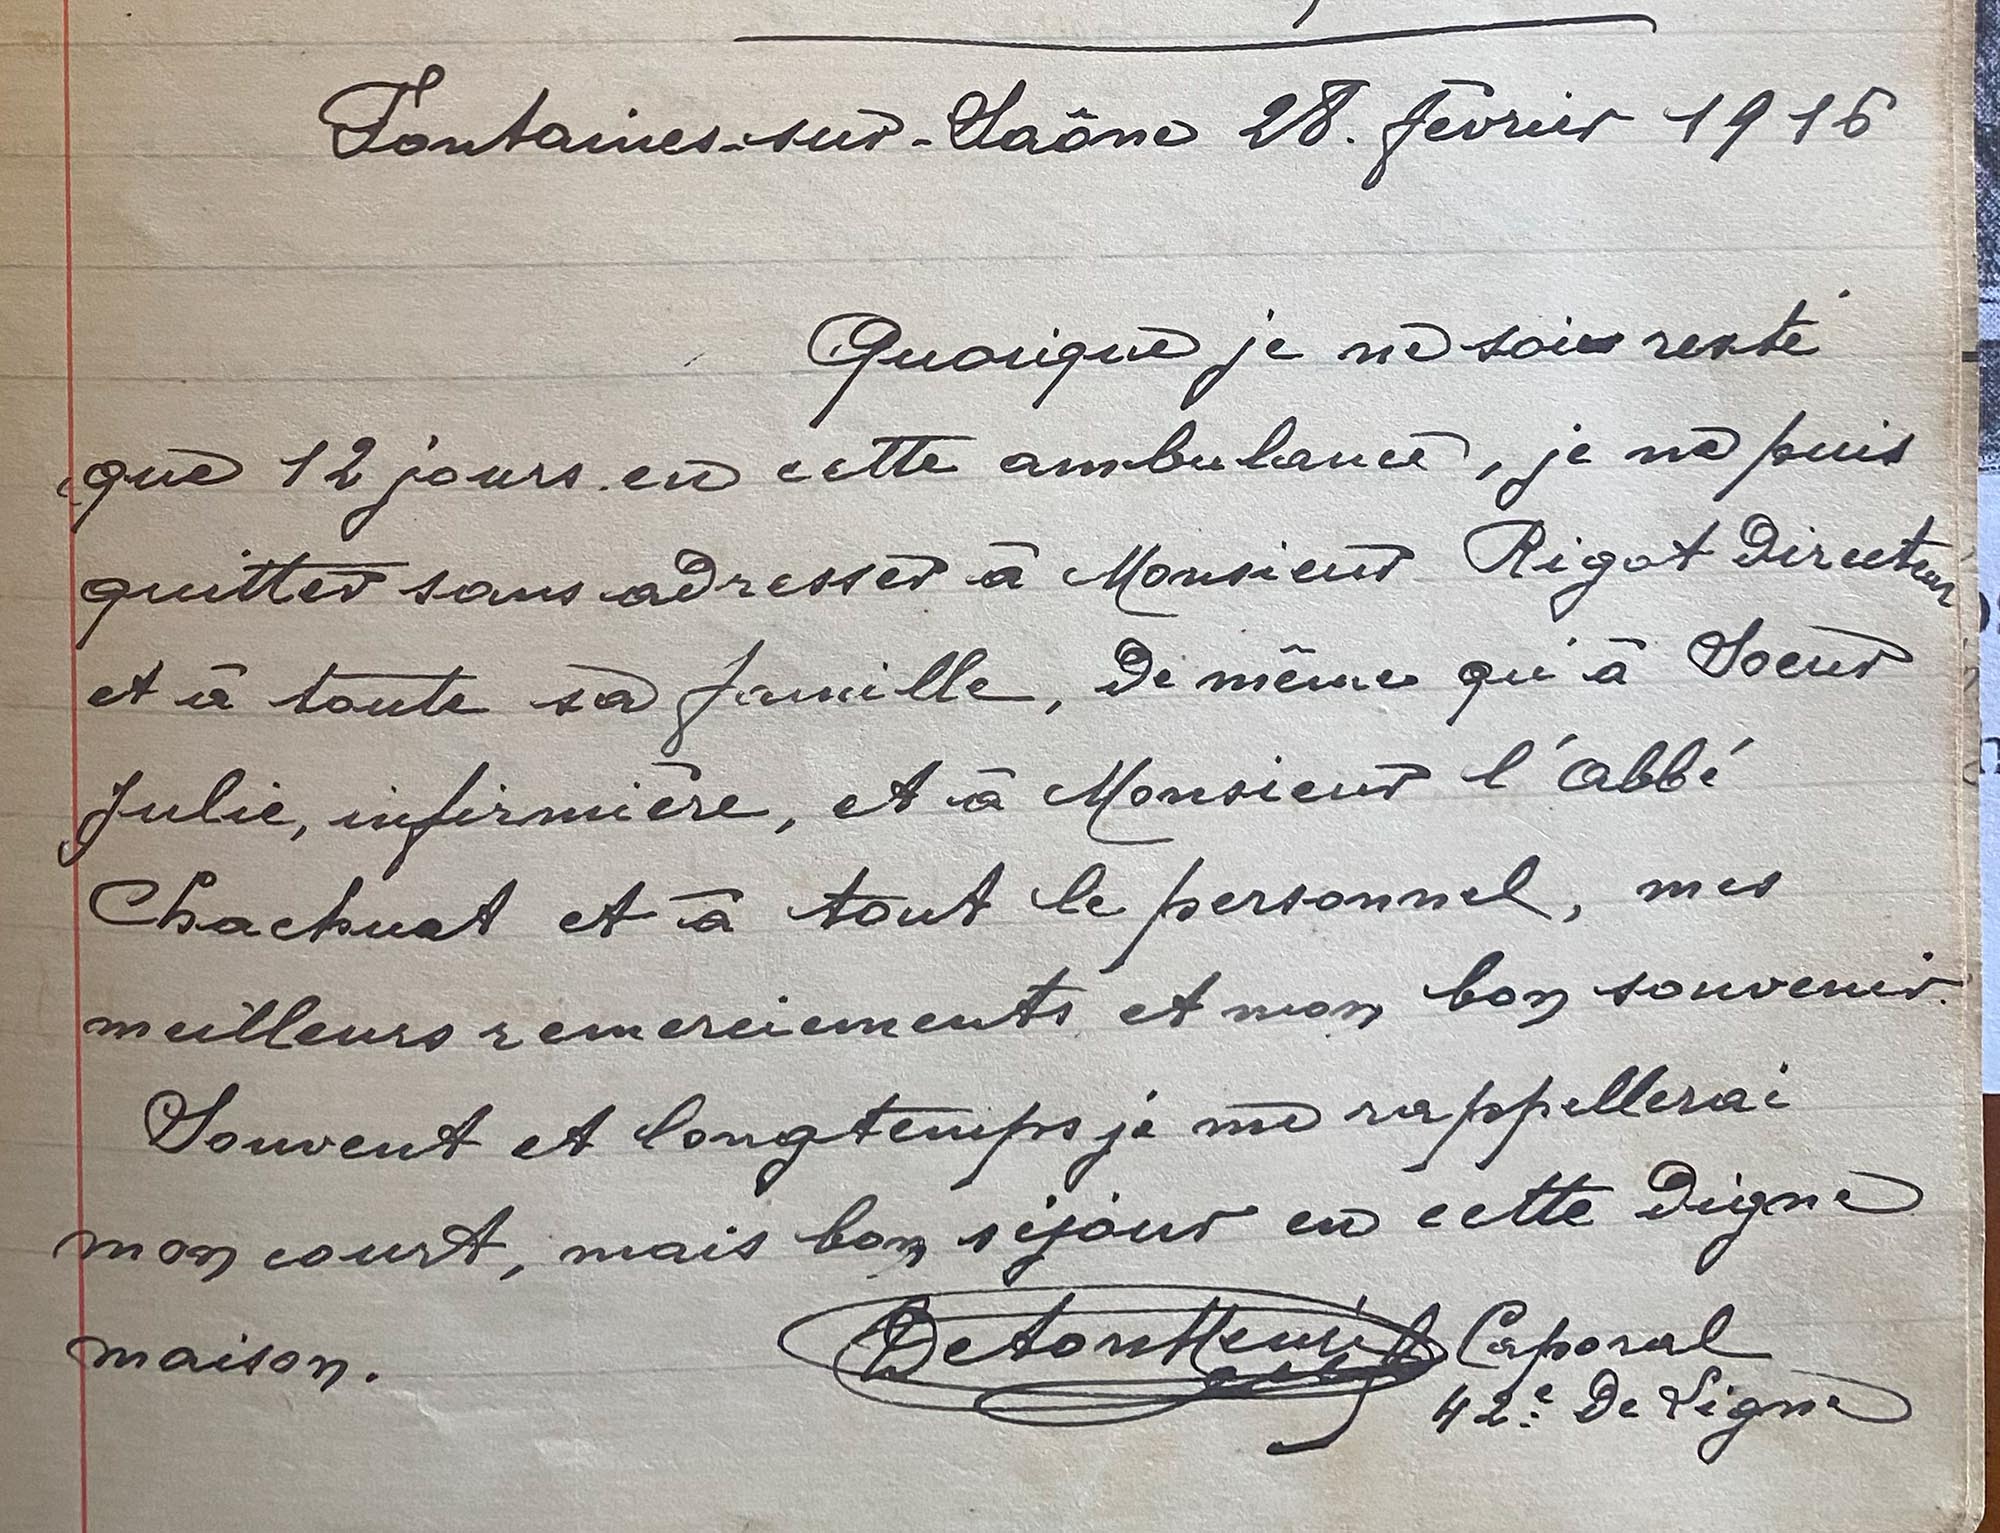 Fontaines-sur-Saône 28. février 1916
Quoique je ne sois resté
que 12 jours en cette ambulance, je ne puis
quitter sans adresser à Monsieur Rigot Directeur
et à toute sa famille, de même qu'à Soeur
Julie, infirmière, et à Monsieur l'abbé
Chachuat et à tout le personnel, mes
meilleurs remerciements et mon bon souvenir.
Souvent et longtemps je me rappellerai
mon court, mais bon séjour en cette digne
maison.
Caporal
42e De Ligne